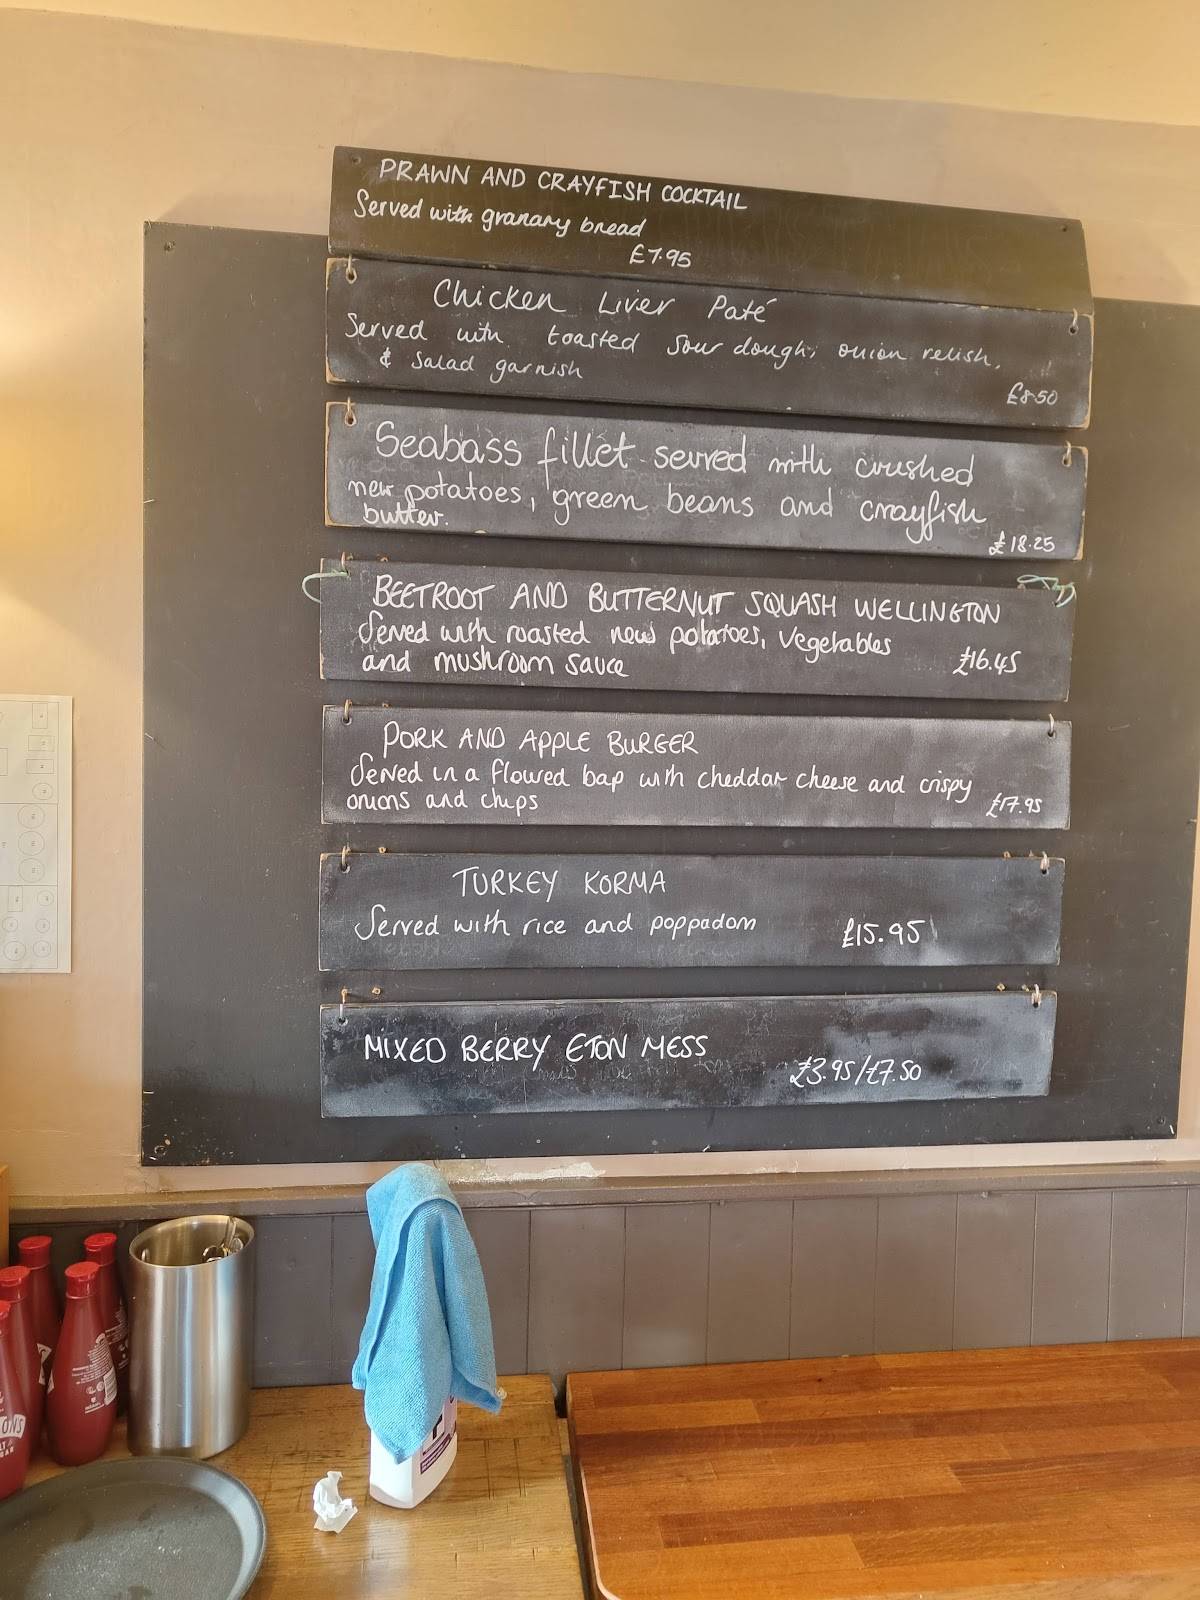 PRAWN AND CRAYFISH COCKTAIL
Served with granary bread
£7.95
Chicken Liver Paté
Served with toasted sour dough, onion relish,
& salad garnish
£8.50
Seabass fillet served with crushed
new potatoes, green beans and crayfish
butter.
£18.25
BEETROOT AND BUTTERNUT SQUASH WELLINGTON
Served with roasted new potatoes, vegetables
and mushroom sauce
£16.45
PORK AND APPLE BURGER
Served in a flowed bap with cheddar cheese and crispy
onions and chips
£17.95
TURKEY KORMA
Served with rice and poppadom
£15.95
MIXED BERRY ETON MESS
£3.95/£7.50